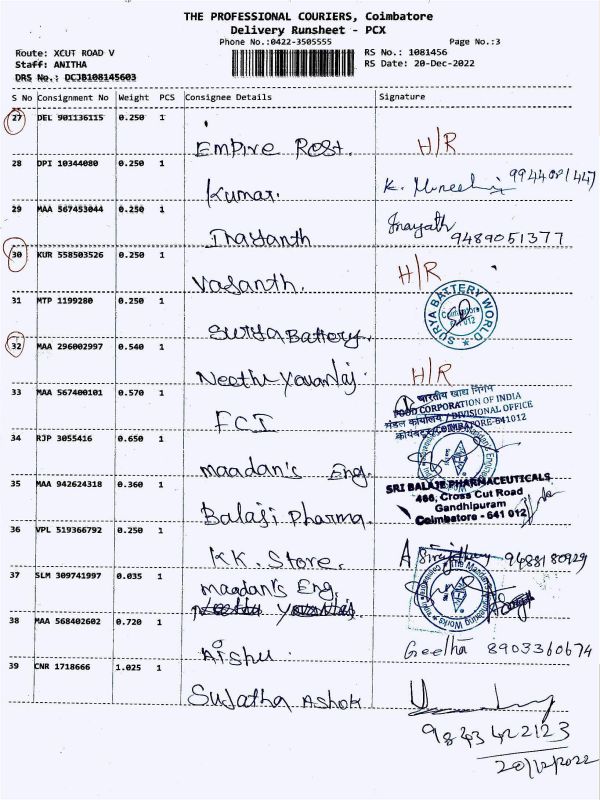 THE PROFESSIONAL COURIERS, Coimbatore
Delivery Runsheet - PCX
Phone No.:0422-3505555 Page No.:3
Route: XCUT ROAD V RS No.: 1081456
Staff: ANITHA RS Date: 20-Dec-2022
DRS No.: DCJB108145603
S No Consignment No Weight PCS Consignee Details Signature
27 DEL 901136115 0.250 1
Empire Rest. H/R
28 DPI 10344080 0.250 1
Kumar. K. 9944081447
29 MAA 567453044 0.250 1
Inayanth Inayath 9489051377
30 KUR 558503526 0.250 1
Vasanth. H/R
31 MTP 1199280 0.250 1
Surya Battery. SURYA BATTERY WORLD Coimbatore 641 012
32 MAA 296002997 0.540 1
H/R
33 MAA 567400101 0.570 1
FCI
भारतीय खाद्य निगम
FOOD CORPORATION OF INDIA
मंडल कार्यालय / DIVISIONAL OFFICE
कोयंबटूर/COIMBATORE-641012
34 RJP 3055416 0.650 1
maadan's Eng.
35 MAA 942624318 0.360 1
Balaji Pharma.
SRI BALAJE PHARMACEUTICALS
466, Cross Cut Road
Gandhipuram
Coimbatore - 641 012
36 VPL 519366792 0.250 1
KK. Store. 9488180929
37 SLM 309741997 0.035 1
maadan's Eng.
38 MAA 568402602 0.720 1
Aishu. Geetha 8903360674
39 CNR 1718666 1.025 1
Sujatha Ashok
9843422123
20/12/2022